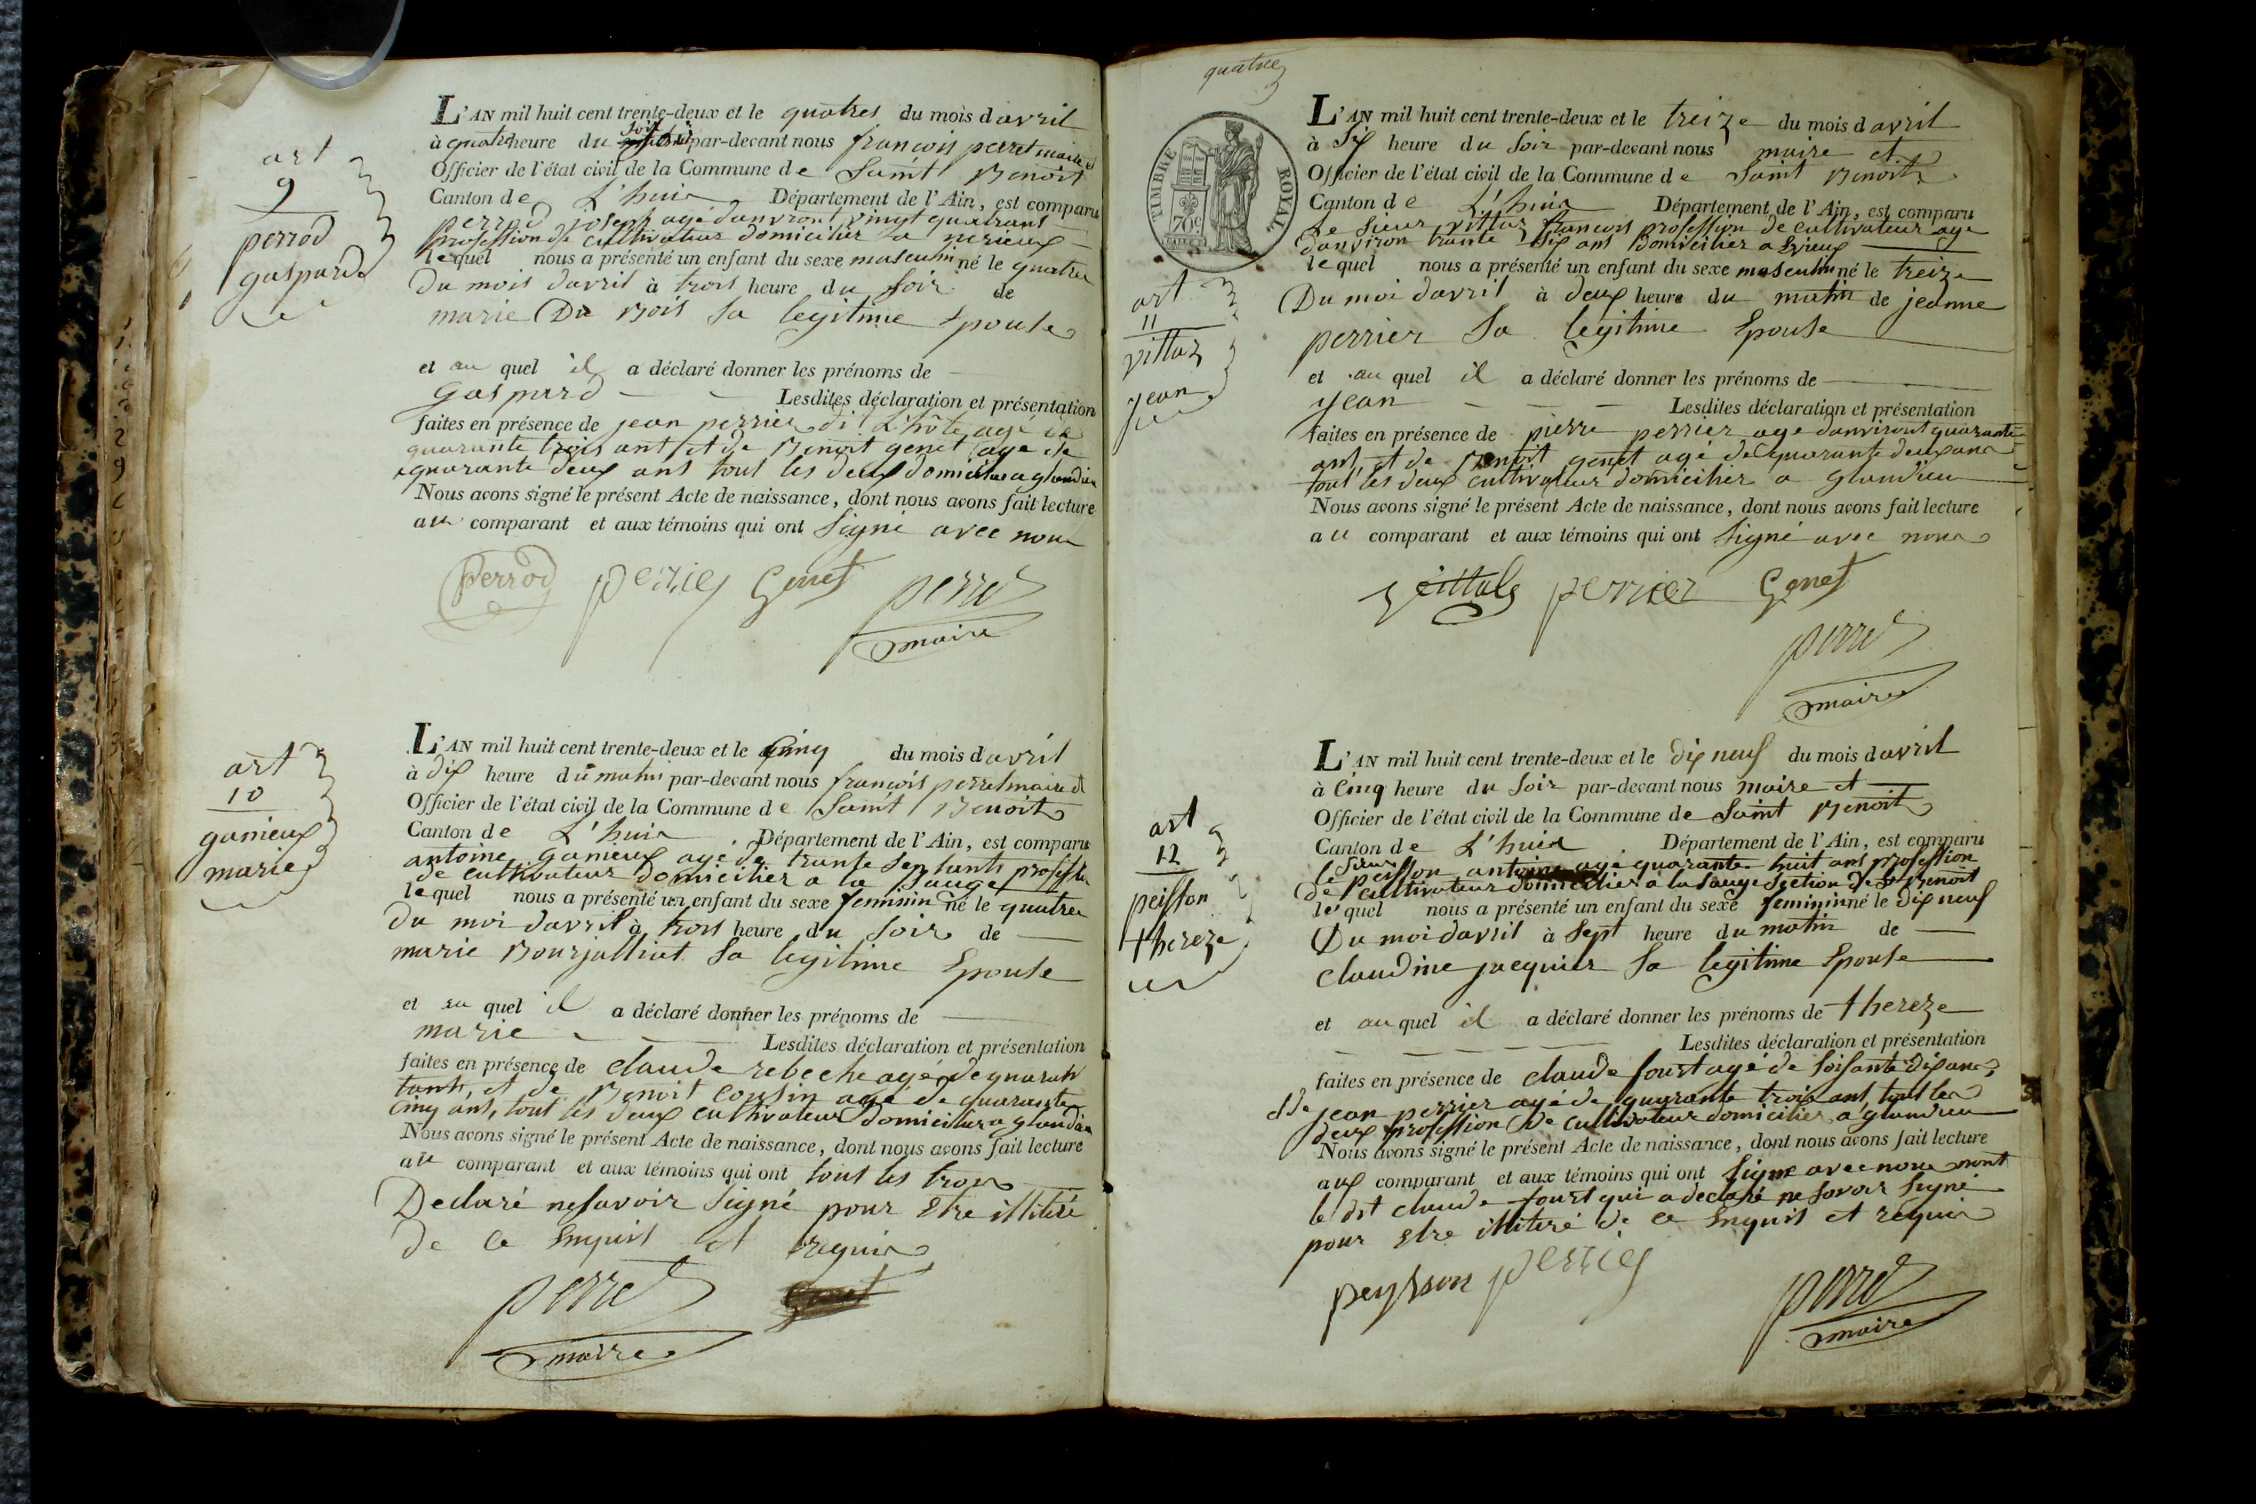 art
9
perrod
gaspard
L'AN mil huit cent trente-deux et le quatres du mois d avril
à quatre heure du soir par-devant nous francois perret maire et
Officier de l'état civil de la Commune d e Saint Benoit
Canton d e L'huis Département de l'Ain, est comparu
perrod joseph agé danviront vingt quatrans
profession de cultivateur domicilier a
le quel nous a présenté un enfant du sexe masculin né le quatre
Du mois davril à trois heure du soir de
marie Du Bois Sa legitime Epouse
et au quel il a déclaré donner les prénoms de
Gaspard Lesdites déclaration et présentation
faites en présence de jean perrier di L'hôte agé de
quarante trois ant et de Benoit genet agé de
quarante deux ans tout les deux domicilier a glandieu
Nous avons signé le présent Acte de naissance, dont nous avons fait lecture
au comparant et aux témoins qui ont Signé avec nous
perrod perrier Genet perret
maire
art
10
ganieux
marie
L'AN mil huit cent trente-deux et le Cinq du mois d avril
à dix heure du matin par-devant nous francois perret maire et
Officier de l'état civil de la Commune d e Saint Benoit
Canton d e L'huis Département de l'Ain, est comparu
antoine Ganieux agé de trante Sept ants profession
de cultivateur domicilier a la Sauge
le quel nous a présenté un enfant du sexe feminin né le quatre
du moi davril à trois heure du Soir de
marie Bourjalliat Sa legitime Epouse
et au quel il a déclaré donner les prénoms de
marie Lesdites déclaration et présentation
faites en présence de claude rebeche agé de quarant
tants et de Benoit cousin agé de quarante
Cinq ans, tout les deux cultivateur domicilier a glandieu
Nous avons signé le présent Acte de naissance, dont nous avons fait lecture
au comparant et aux témoins qui ont tout les trois
Declaré ne savoir Signé pour Etre illitéré
de ce Enquis et requis
perret
maire
quatre
TIMBRE ROYAL
70c
art
11
vittoz
jean
L'AN mil huit cent trente-deux et le treize du mois d avril
à Six heure du Soir par-devant nous maire et
Officier de l'état civil de la Commune d e Saint Benoit
Canton d e L'huis Département de l'Ain, est comparu
Le Sieur vittoz francois profession de cultivateur age
danviron trante Six ans Domicilier a Evieux
le quel nous a présenté un enfant du sexe masculin né le treize
Du moi davril à deux heure du matin de jeanne
perrier Sa legitime Epouse
et au quel il a déclaré donner les prénoms de
jean Lesdites déclaration et présentation
faites en présence de pierre perrier age danviront quarante
ant et de Benoit genet agé de quarante deux ans
tout les deux cultivateur domicilier a glandieu
Nous avons signé le présent Acte de naissance, dont nous avons fait lecture
au comparant et aux témoins qui ont Signé avec nous
perrier Genet
perret
maire
art
12
peisson
thereze
L'AN mil huit cent trente-deux et le dix neuf du mois d avril
à Cinq heure du Soir par-devant nous maire et
Officier de l'état civil de la Commune d e Saint Benoit
Canton d e L'huis Département de l'Ain, est comparu
le Sieur peisson antoine agé quarante huit ans profession
de cultivateur domicilier a la Sauge Section de St Benoit
le quel nous a présenté un enfant du sexe feminin né le dix neuf
Du moi davril à Sept heure du matin de
claudine jacquier Sa legitime Epouse
et au quel il a déclaré donner les prénoms de thereze
Lesdites déclaration et présentation
faites en présence de claude fourt agé de Soisante Dix ans
et de jean perrier agé de quarante trois ant tout les
deux profession de cultivateur domicilier a glandieu
Nous avons signé le présent Acte de naissance, dont nous avons fait lecture
aux comparant et aux témoins qui ont Signé avec nous
le dit claude fourt qui a declaré ne Savoir Signé
pour Etre illitéré de ce Enquis et requis
peysson perrier
perret
maire